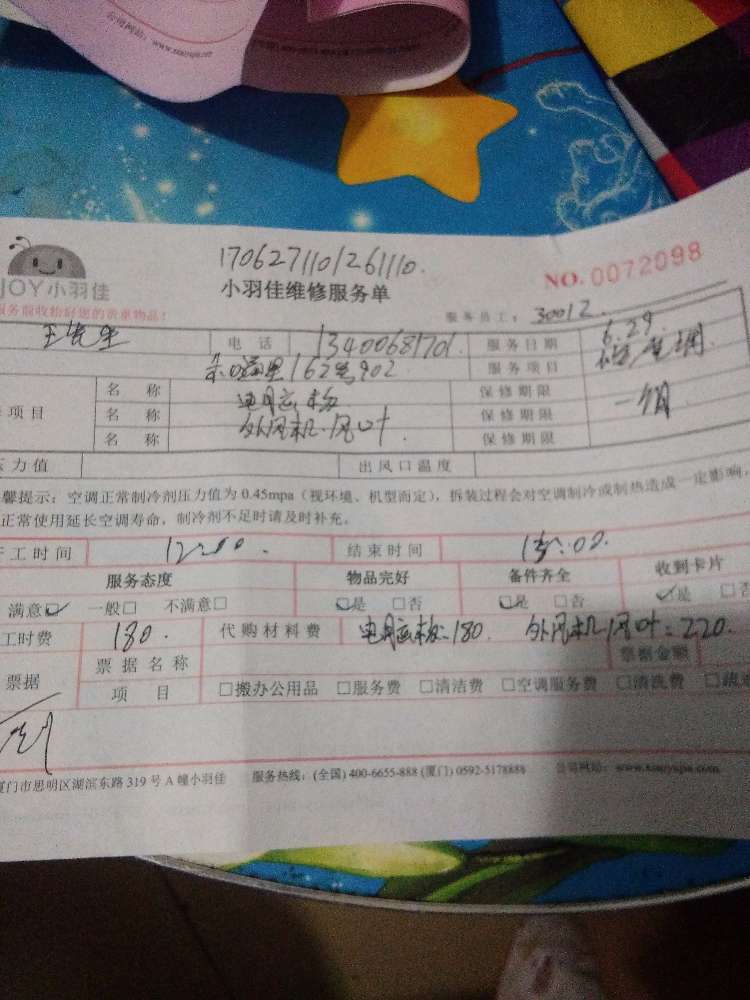 公司网站：www.xiaoyujia.com
1706271101261110.
JOY小羽佳
小羽佳维修服务单
NO.0072098
服务前收拾好您的贵重物品！
服务员工：30012
王先生 电话 13400681701 服务日期 6.29
162号902 服务项目
项目 名称 电脑板 保修期限 一个月
名称 外风机.风叶 保修期限
名称 保修期限
压力值 出风口温度
馨提示：空调正常制冷剂压力值为 0.45mpa（视环境、机型而定），拆装过程会对空调制冷或制热造成一定影响，
正常使用延长空调寿命，制冷剂不足时请及时补充。
开工时间 12:00. 结束时间
服务态度 物品完好 备件齐全 收到卡片
满意☑ 一般□ 不满意□ ☑是 □否 ☑是 □否 ☑是 □否
工时费 180. 代购材料费 180. 外风机风叶:220.
票据 票据名称 票据金额
项目 □搬办公用品 □服务费 □清洁费 □空调服务费 □清洗费
厦门市思明区湖滨东路 319 号 A 幢小羽佳 服务热线：(全国) 400-6655-888 (厦门) 0592-5178888 公司网站：www.xiaoyujia.com